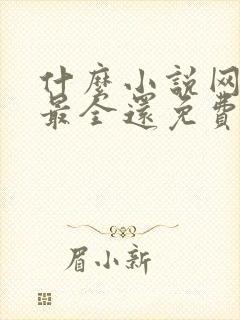 什麼小说网
最全還免費
眉小新